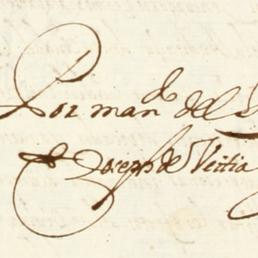 Por man.do del S
Joseph de Veitia